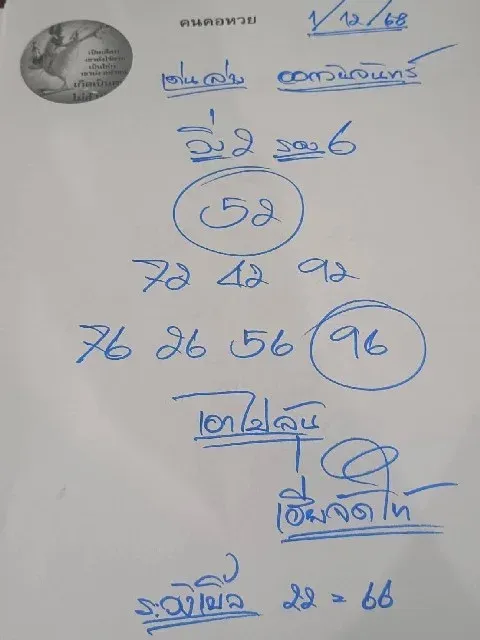 คนคอหวย
1/12/68
เด่นล่าง ออกวันจันทร์
วิ่ง 2 รอง 6
52
72 42 92
76 26 56 96
เอาไปลุ้น
เฮียจัดให้
ระวังเบิ้ล 22 = 66